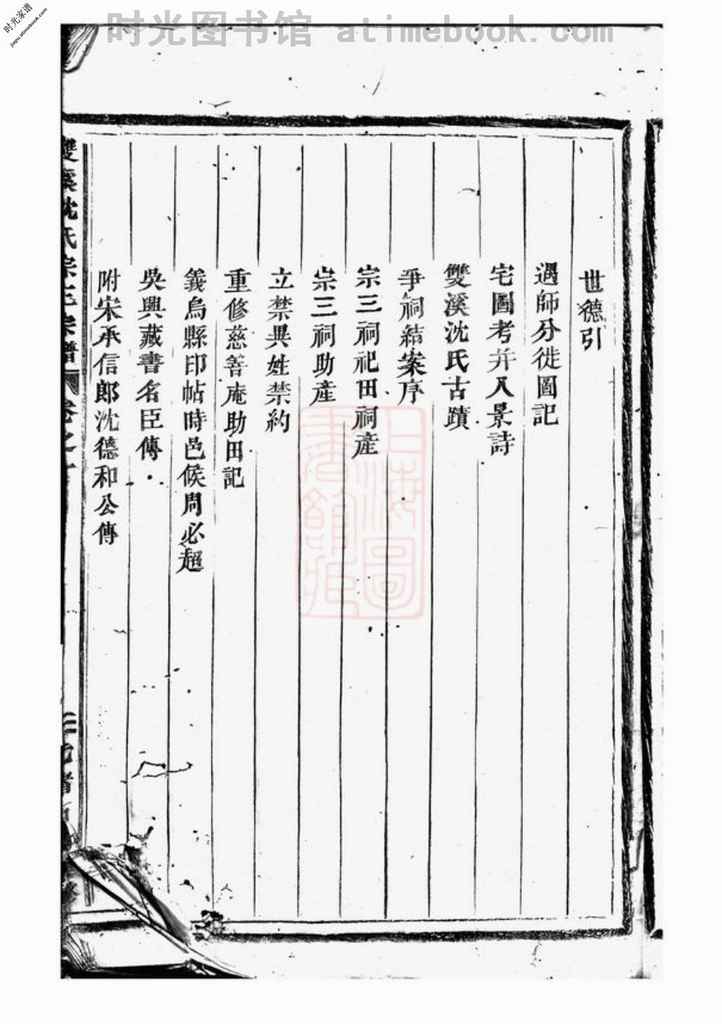 时光图书馆 atimebook.com
时光家谱
jiapu.atimebook.com
世德引
遇師分徙圖記
宅圖考并八景詩
雙溪沈氏古蹟
爭祠結案序
宗三祠祀田祠產
宗三祠助產
立禁異姓禁約
重修慈善庵助田記
義烏縣印帖時邑候周必超
吳興藏書名臣傳
附宋承信郎沈德和公傳
雙溪沈氏宗三宗譜
卷之
二
上海圖書館藏